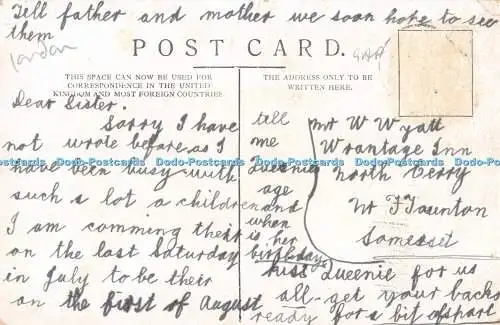 Tell father and mother we soon hope to see
them
London
POST CARD.
THIS SPACE CAN NOW BE USED FOR
CORRESPONDENCE IN THE UNITED
KINGDOM AND MOST FOREIGN COUNTRIES
THE ADDRESS ONLY TO BE
WRITTEN HERE.
Dear Sister.
Sorry I have
not wrote before as I
have been busy with
such s lot a children
I am comming their
on the last Saturday
in July to be their
on the first of August
tell
me
Queenie
age
and
when
is her
birthday
Mr W Wyatt
Wrantage Inn
North Curry
Nr Taunton
Somerset
kiss Queenie for us
all - get your backs
ready for a bit of sport
Dodo-Postcards Dodo-Postcards Dodo-Postcards Dodo-Postcards Dodo-Postcards